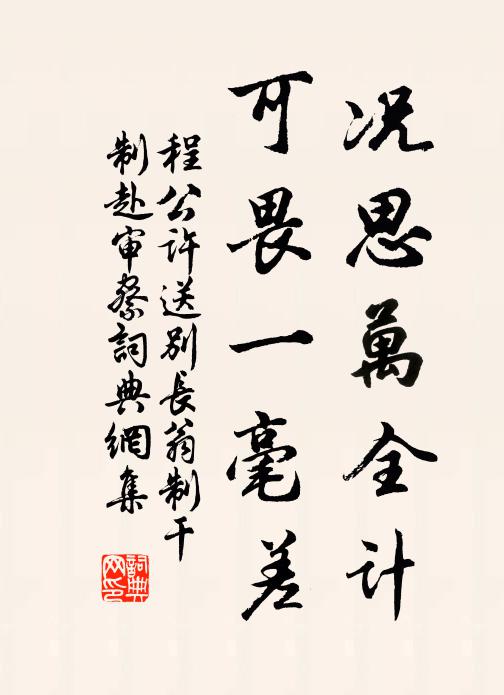 况思萬全计
可畏一毫差
程公许送别長翁制干
制赴审察詞典網集
詞典网印